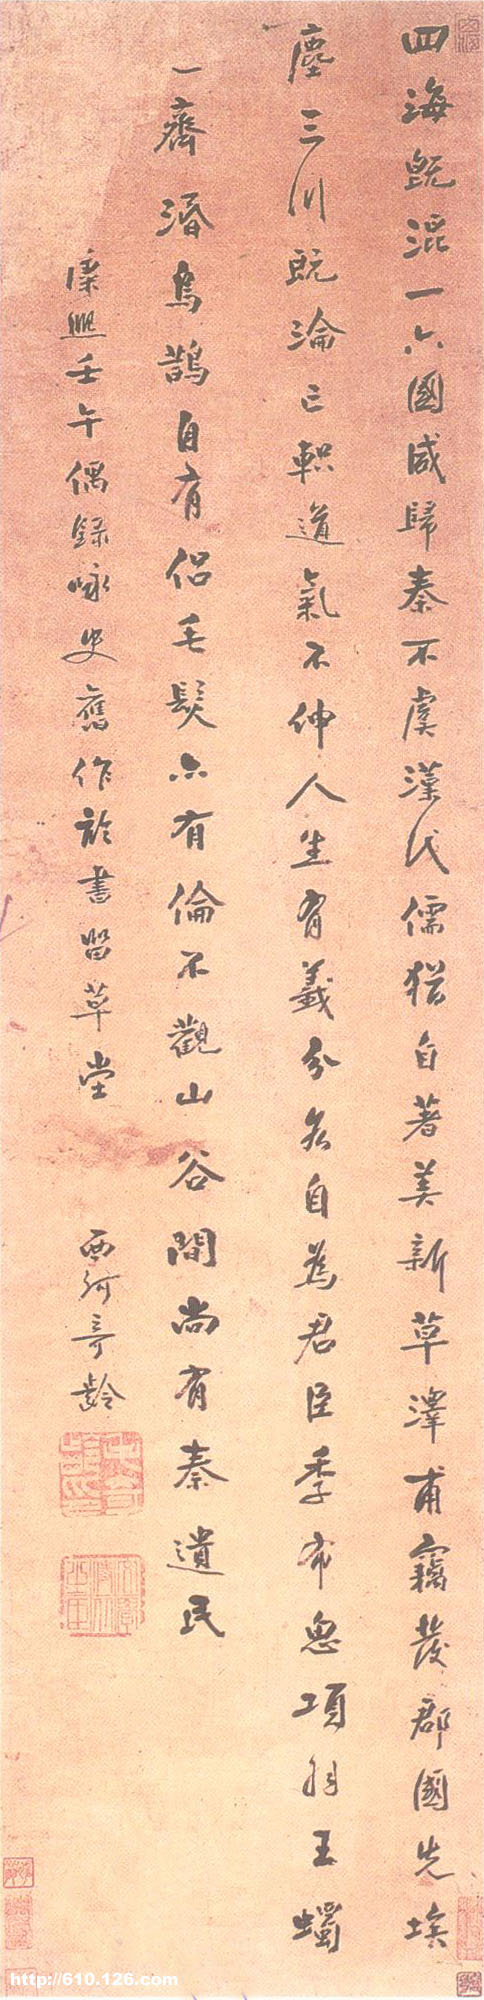 四海既混一六國咸歸秦不虞漢代儒猶自著美新草澤甫竊發郡國先埃
塵三川既淪亡軹道氣不伸人生有義分各自為君臣季布忠項羽王蠋
一齊湣烏鵲自有侶毛髮亦有倫不觀山谷間尚有秦遺民
康熙壬午偶錄咏史舊作於書留草堂
西河奇齡
http://610.126.com